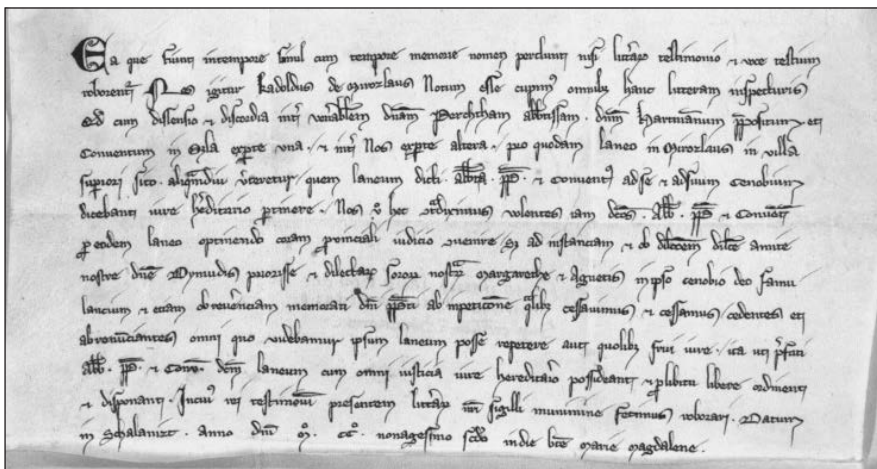 Ea que fiunt in tempore simul cum tempore memorie nomen perdunt nisi litt̄aꝝ testimonio ⁊ voce testium
roborent᷑ Nos igitur Kadoldus de Mirozlaus Notum esse cupimꝰ omnibꝫ hanc litteram inspecturis
Qđ cum dissensio ⁊ discordia int᷑ ven̄abilem dn̄am Perchtham abb̄tissam . dn̄m Hartmannum p̄positum et
Conventum in ex parte una . ⁊ int᷑ Nos ex parte altera . pro quodam laneo in Mirozlaus in villa
sup̄iori sito . aliqͣmdiu v̄teretur quem laneum dicti . Abb̄ta . pp̄ . ⁊ Conventꝰ ad se ⁊ ad suum Cenobium
dicebant iure h̄editario ꝑtinere . Nos v̊ hec volentes iam dc̄os . Abb̄ . pp̄ ⁊ Convent̄
ꝓ eodem laneo optinendo coram provinciali iudicio ꝯvenire Sꝫ ad instanciam ⁊ ob dilc̄em amite
nostre dn̄e Dymudis priorisse ⁊ dilectarꝫ sororꝫ nostrarꝫ Margarethe ⁊ Agnetis in ip̄o cenobio deo famu
lancium ⁊ etiam ob reven̄ciam memorati dn̄i pp̄ti ab inpetic̄one qͣlibꝫ cessavimus ⁊ cessamus / cedentes et
abrenūciantes omni quo videbamur ip̄sum laneum posse repetere aut quolibꝫ frui iure . ita ut p̄fati
Abb̄ . pp̄ . ⁊ Conv̄ . dc̄m laneum cum omni iusticia iure hereditario possideant ⁊ ꝓ libitu libere ordinent
⁊ disponant . In cuiꝰ rei testimoniū presentem litt̄aꝫ nr̄i sigilli munimine fecimus roborari . Datum
in Schalawicz . anno dn̄i M̊ . CC̊ . nonagesimo sc̄do in die bt̄e Marie Magdalene .